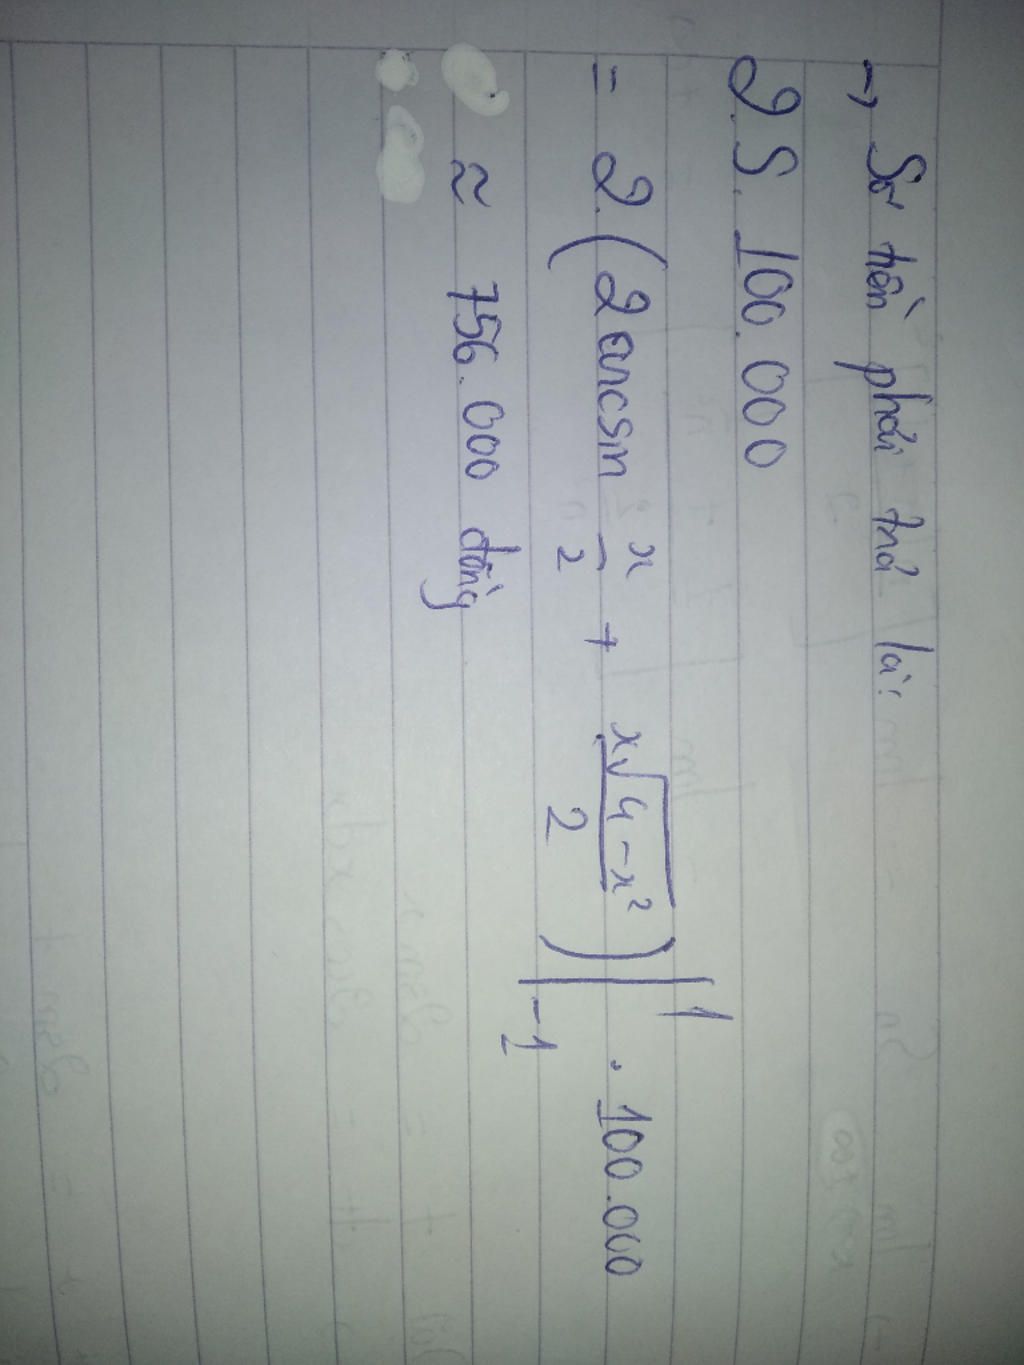 → Số tiền phải trả là:
2.S.100.000
= 2.(2arcsin x/2 + x√4-x²/2)|¹₋₁ . 100.000
≈ 756.000 đồng